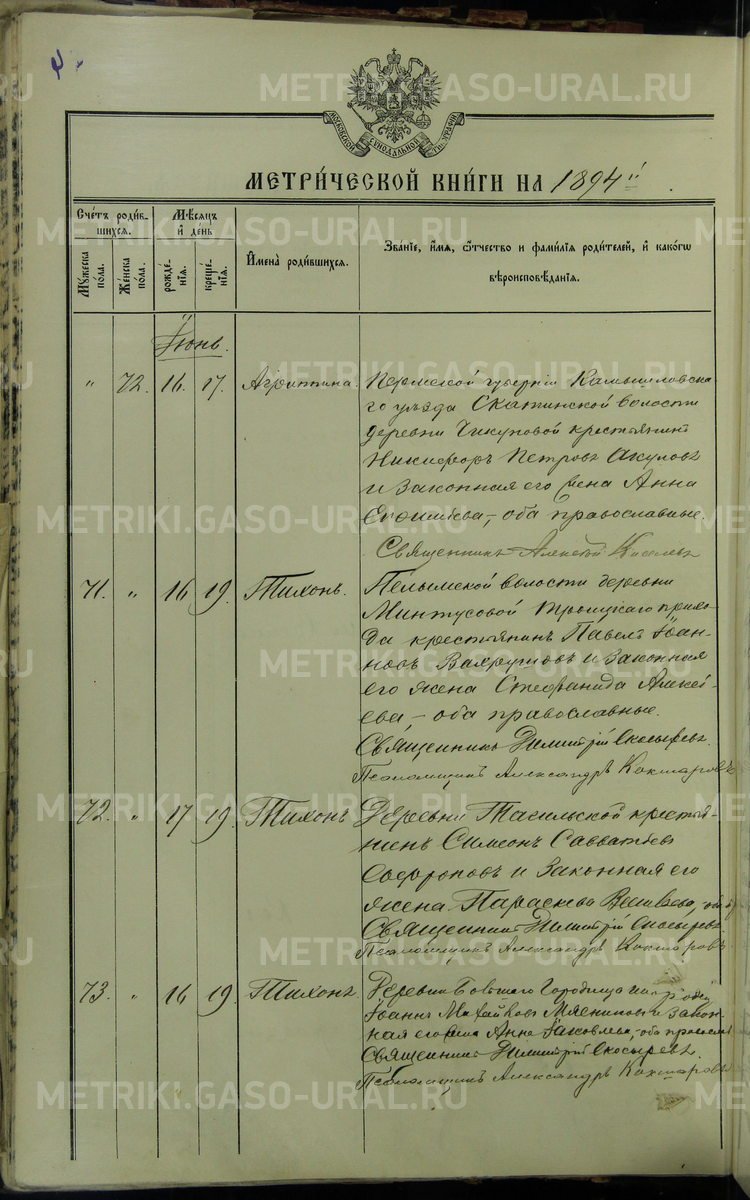 МОСКОВСКОЙ СѴНОДАЛЬНОЙ
МЕТРИ́ЧЕСКОЙ КНИ́ГИ НА 1894й
Сче́тъ роди́в-
шихся.
Мѣ́сяцъ
и҆ де́нь
Мꙋ́жеска
по́ла.
Же́нска
по́ла.
рожде́-
нїѧ.
креще́-
нїѧ.
И҆мена̀ роди́вшихся.
Зва́нїе, и҆́мѧ, ѻ҆́тчество и҆ фами́лїѧ роди́телей, и҆ како́гѡ
вѣроисповѣ́данїѧ.
Іюнь.
" 72. 16. 17. Агриппина. Пермской губерніи Камышловска-
го уѣзда Скатинской волости
деревни Чикуновой крестьянинъ
Никифоръ Петровъ Акуловъ
и законная его жена Анна
оба православные.
Священникъ Алексѣй
71. " 16 19. Тихонъ. Пелымской волости деревни
Троицкаго прихо-
да крестьянинъ Павелъ Іоан-
новъ Вахрушовъ и законная
его жена Стефанида Алексѣ-
ева, – оба православные.
Священникъ Димитрій Скосыревъ.
Псаломщикъ Александръ Кокшаровъ
72. " 17 19. Тихонъ Деревни Тагильской крестья-
нинъ Симеонъ Савватѣевъ
Софроновъ и законная его
жена Параскева
Священникъ Димитрій Скосыревъ
Псаломщикъ Александръ Кокшаровъ
73. " 16 19. Тихонъ Деревни Городища
Іоаннъ Михайловъ Мясниковъ и закон-
ная его жена Анна Іаковлева, оба правосл
Священникъ Димитрій Скосыревъ.
Псаломщикъ Александръ Кокшаровъ
METRIKI.GASO-URAL.RU